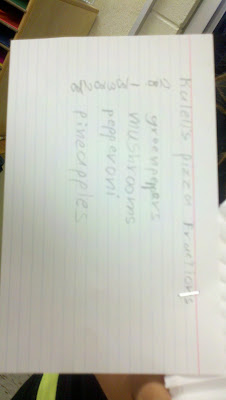 pizza fractions
2/8 greenpeppers
1/8 mushrooms
3/8 pepperoni
2/8 pineapples